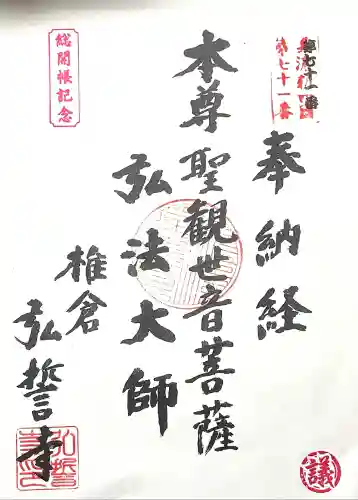 第七十一番
奉納経
本尊聖観世音菩薩
弘法大師
椎倉
弘誓寺
総開帳記念
議